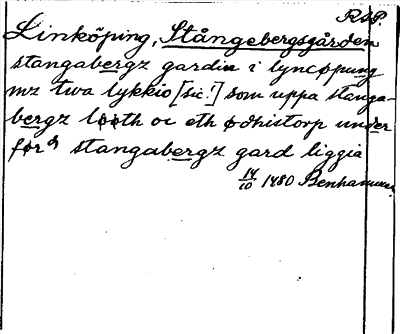 RAP.
Linköping, Stångebergsgården
stangabergz gardin i lyncøpung
mz twa lykkio [sic!] som uppa stanga-
bergz løøth oc eth ødhistorp under
førd stangabergz gard liggia
14/10 1480 Benhammar